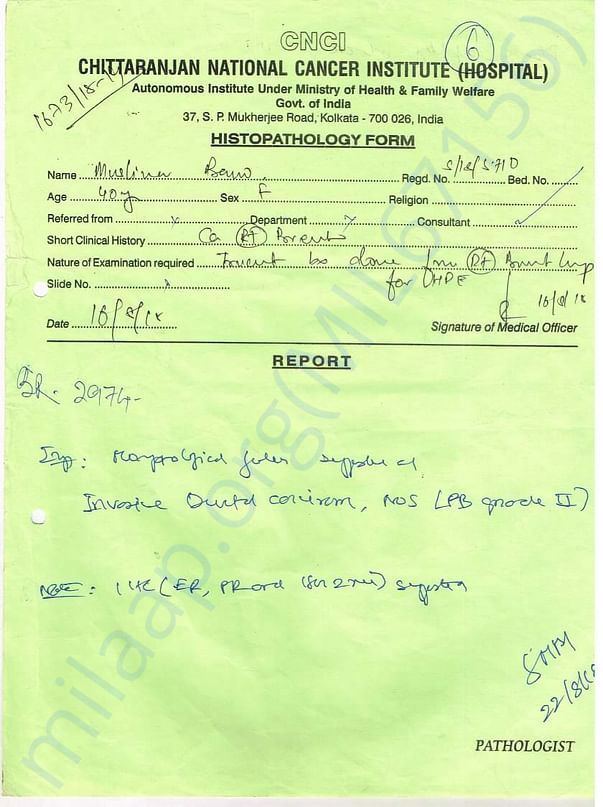 CNCI
6
CHITTARANJAN NATIONAL CANCER INSTITUTE (HOSPITAL)
1673/18-19
Autonomous Institute Under Ministry of Health & Family Welfare
Govt. of India
37, S. P. Mukherjee Road, Kolkata - 700 026, India
HISTOPATHOLOGY FORM
Name Muslima Bano Regd. No. S/18/5710 Bed. No.
Age 40y Sex F Religion
Referred from x Department x Consultant
Short Clinical History Ca (Rt) Breast
Nature of Examination required Trucut bx done from (Rt) Breast lump
for HPE
Slide No. x
16/8/18
Date 16/8/18 Signature of Medical Officer
REPORT
BR. 2974
Imp: features suggestive of
Invasive Ductal carcinoma, NOS (grade II)
Note: IHC (ER, PR and
22/8/18
PATHOLOGIST
milaap.org(MIL67156)